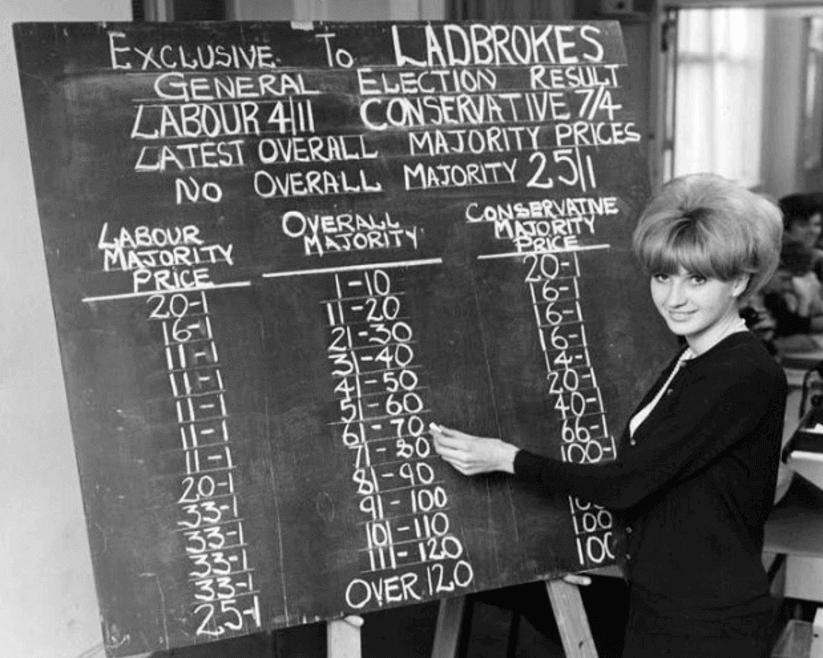 EXCLUSIVE TO LADBROKES
GENERAL ELECTION RESULT
LABOUR 4/11 CONSERVATIVE 7/4
LATEST OVERALL MAJORITY PRICES
NO OVERALL MAJORITY 25/1
LABOUR MAJORITY PRICE
OVERALL MAJORITY
CONSERVATIVE MAJORITY PRICE
20-1 1-10 20-1
16-1 11-20 6-1
11-1 21-30 6-1
11-1 31-40 6-1
11-1 41-50 4-1
11-1 51-60 20-1
11-1 61-70 40-1
20-1 71-80 66-1
33-1 81-90 100-
33-1 91-100
33-1 101-110 100
33-1 111-120 100
25-1 OVER 120 100